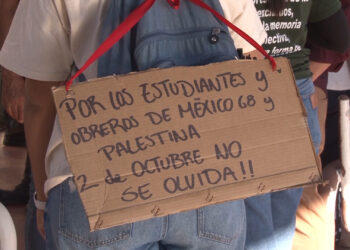 POR LOS ESTUDIANTES y
OBREROS DE MÉXICO 68 y
PALESTINA
2 de OCTUBRE NO
SE OLVIDA!!
la memoria
colectiva,
forma de